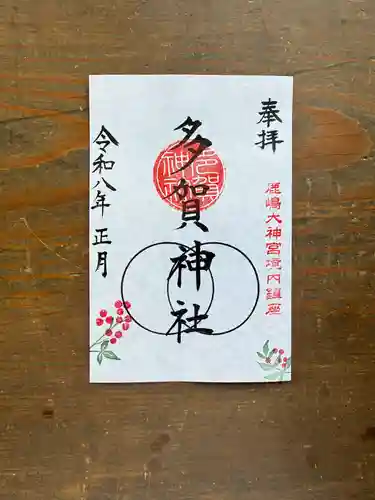 奉拝
鹿嶋大神宮境内鎮座
多賀神社
多賀神社
令和八年 正月